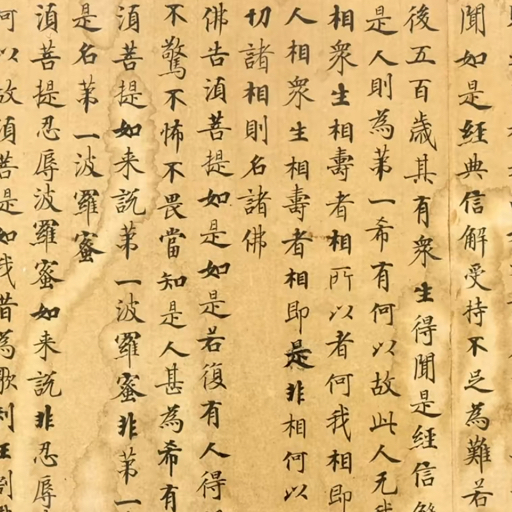 聞如是經典信解受持不足為難若
後五百歲其有衆生得聞是經信
是人則為第一希有何以故此人无
相衆生相壽者相所以者何我相即
人相衆生相壽者相即是非相何以
切諸相則名諸佛
佛告湏菩提如是如是若復有人得
不驚不怖不畏當知是人甚為希有
湏菩提如来說第一波羅蜜非第一
是名第一波羅蜜
湏菩提忍辱波羅蜜如来說非忍辱
何以故湏菩提如我昔為歌利王割